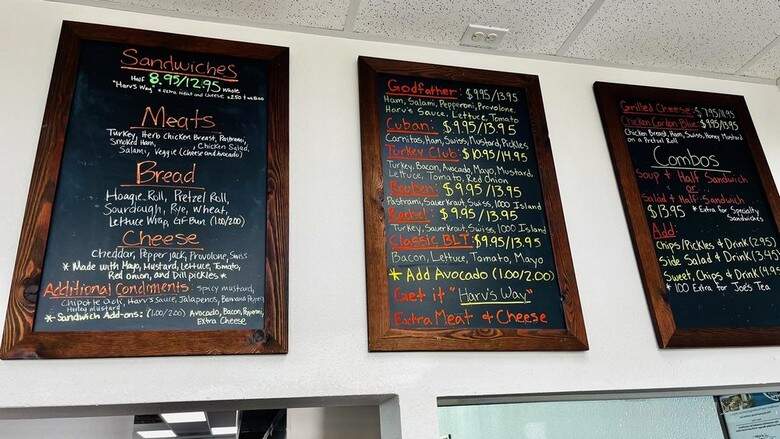 Sandwiches
Half 8.95/12.95 Whole
"Harv's Way" * Extra Meat and Cheese
Meats
Turkey, Herb Chicken Breast, Pastrami,
Smoked Ham, Chicken Salad,
Salami, Veggie (Cheese and Avocado)
Bread
Hoagie Roll, Pretzel Roll,
Sourdough, Rye, Wheat,
Lettuce Wrap, GF Bun (1.00/2.00)
Cheese
Cheddar, Pepper Jack, Provolone, Swiss
* Made with Mayo, Mustard, Lettuce, Tomato,
Red onion, and Dill pickles *
Additional Condiments: Spicy mustard,
Chipotle Aioli, Harv's Sauce, Jalapenos, Banana Peppers
Honey mustard
* Sandwich Add-ons: (1.00/2.00) Avocado, Bacon, Pepperoni,
Extra Cheese
Godfather: $9.95/13.95
Ham, Salami, Pepperoni, Provolone,
Harv's Sauce, Lettuce, Tomato
Cuban: $9.95/13.95
Carnitas, Ham, Swiss, Mustard, Pickles
Turkey Club: $10.95/14.95
Turkey, Bacon, Avocado, Mayo, Mustard,
Lettuce, Tomato, Red Onion
Reuben: $9.95/13.95
Pastrami, Sauerkraut, Swiss, 1000 Island
Rachel: $9.95/13.95
Turkey, Sauerkraut, Swiss, 1000 Island
Classic BLT: $9.95/13.95
Bacon, Lettuce, Tomato, Mayo
* Add Avocado (1.00/2.00)
Get it "Harv's Way"
Extra Meat & Cheese
Grilled Cheese: $7.95/11.95
Chicken Cordon Bleu: $9.95/13.95
Chicken Breast, Ham, Swiss, Honey Mustard
on a Pretzel Roll
Combos
Soup & Half Sandwich
or
Salad & Half Sandwich
$13.95 * Extra for Specialty
Sandwiches
Add:
Chips, Pickles & Drink (2.95)
Side Salad & Drink (3.45)
Sweet, Chips & Drink
* 1.00 Extra for Joe's Tea